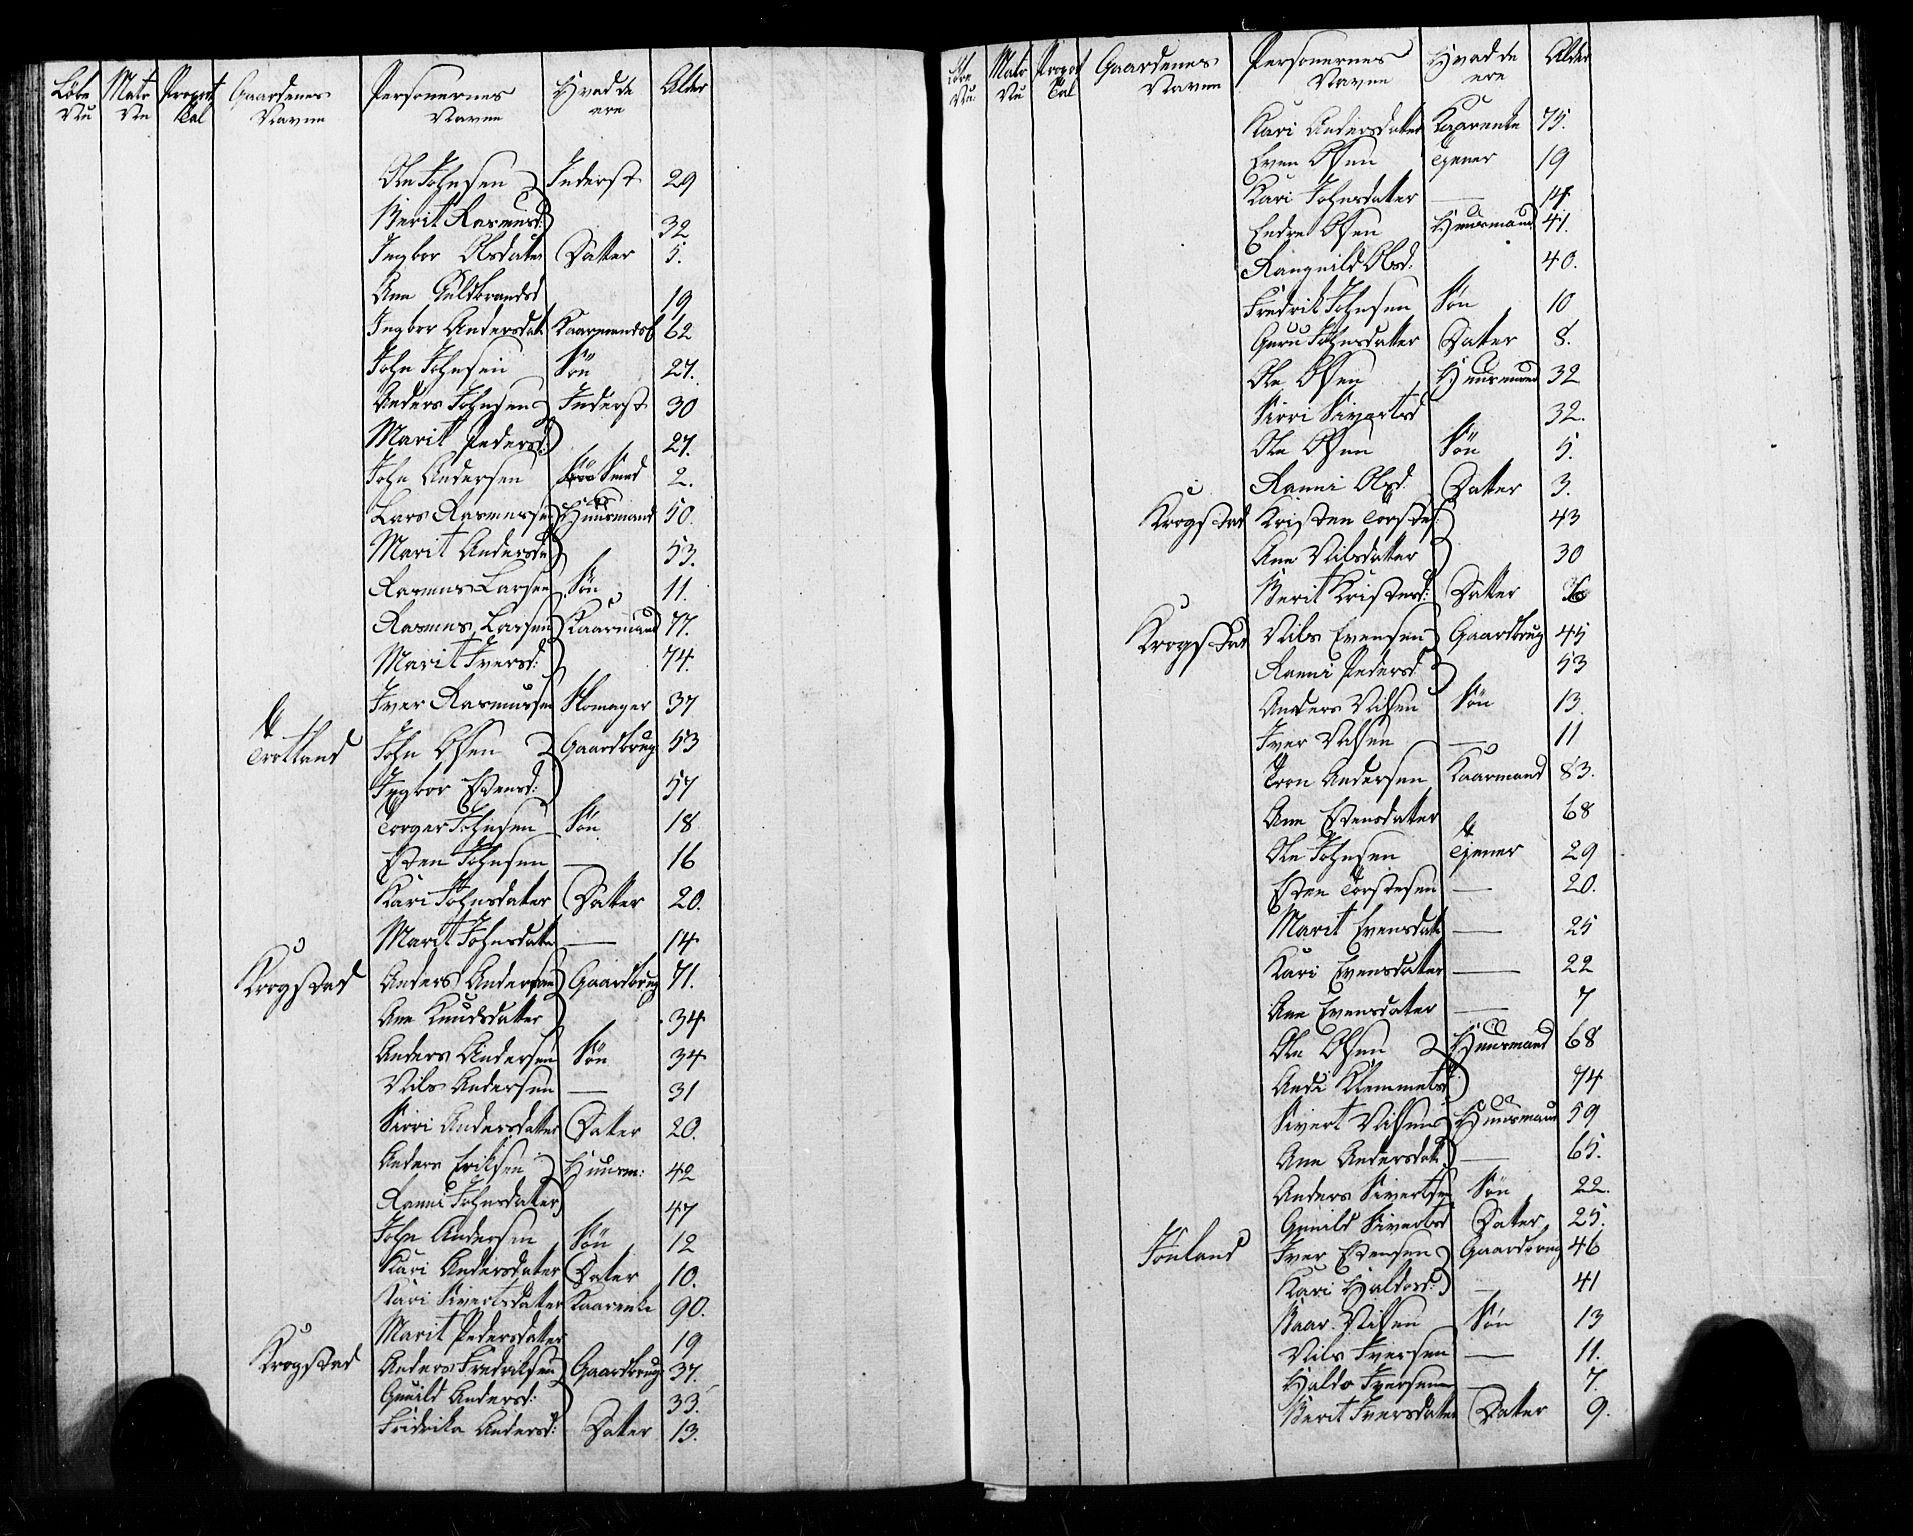 Løbe Nu | Matr Nu | Proport Tal | Gaardenes Navne | Personernes Navne | Hvad de ere | Alder
Ole Johnsen | Inderst | 29
Berit Rasmusd: | 32
Ingbor Olsdater | Datter | 5.
Ane Guldbrandsd | 19
Ingbor Andersdat | 62
John Johnsen | Søn | 27.
Anders Johnsen | Inderst | 30
Marit Pedersd: | 27.
John Andersen | Søn | 2.
Lars Rasmusse | Huusmand | 50.
Marit Andersda | 53.
Rasmus Larsen | Søn | 11.
Rasmus Larsen | Kaarmand | 77.
Marit Iversd: | 74.
Iver Rasmussen | Skomager | 37
Trotland | John Olsen | Gaardbrug | 53
Ingbor Estensd: | 57
Torger Johnsen | Søn | 18
Esten Johnsen | — | 16
Kari Johnsdater | Datter | 20.
Marit Johnsdate | — | 14
Krogstad | Anders Andersen | Gaardbrug | 71.
Ane Knudsdatter | 34
Anders Andersen | Søn | 34
Nils Andersen | — | 31
Sirri Andersdatter | Dater | 20.
Anders Eriksen | Huusm: | 42
Ranni Johnsdater | 47
John Andersen | Søn | 12
Kari Andersdater | Dater | 10.
Kari Sivertsdater | Kaarenke | 90.
Marit Pedersdatter | 19
Krogstad | Anders Fredriksen | Gaardbrug | 37.
Gunild Andersd: | 33.
Fridrika Andersd: | Dater | 13.
Løbe Nu | Matr Nu | Proport Tal | Gaardenes Navne | Personernes Navne | Hvad de ere | Alder
Kari Andersdatter | Kaarenke | 75.
Even Olsen | Tjener | 19
Kari Johnsdatter | — | 14.
Endre Olsen | Huusmand | 41.
Rangnild Olsd: | 40.
Fredrik Johnsen | Søn | 10
Guru Johnsdatter | Datter | 8.
Ole Olsen | Huusmand | 32
Sirri Sivertsd | 32.
Ole Olsen | Søn | 5.
Ranni Olsd: | Datter | 3.
Krogstad | Kristen Torstes: | 43
Ane Nilsdatter | 30
Berit Kristensd: | Datter
Krogstad | Nils Evensen | Gaardbrug | 45
Ranni Pedersd | 53
Anders Nilsen | Søn | 13.
Iver Nilsen | — | 11
Tron Andersen | Kaarmand | 83.
Ane Estensdater | 68
Ole Johnsen | Tjener | 29
Esten Torstesen | — | 20.
Marit Evensdat | — | 25
Kari Evensdatter | — | 22
Ane Evensdater | — | 7
Ole Olsen | Huusmand | 68
Andi Klemmetsd | 74
Sivert Nilsen | Huusmand | 59
Ane Andersdat | — | 65.
Anders Sivertsen | Søn | 22.
Gunild Sivertsd | Dater | 25.
Fonland | Iver Estensen | Gaardbrug | 46
Kari Haldorsd: | — | 41
Baar Nilsen | Søn | 13
Nils Iversen | — | 11.
Haldo Iversen | — | 7.
Berit Iversdatter | Datter | 9.